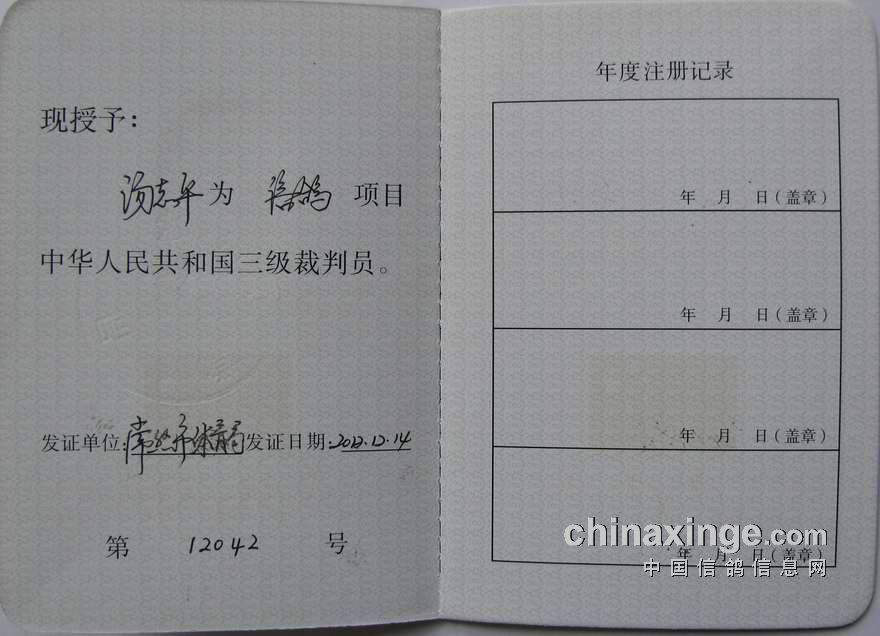 现授予:
汤志华为 信鸽 项目
中华人民共和国三级裁判员。
发证单位: 常熟市体育局 发证日期: 2012.12.14
第 12042 号
年度注册记录
年 月 日(盖章)
年 月 日(盖章)
年 月 日(盖章)
年 月 日(盖章)
chinaxinge.com
中国信鸽信息网